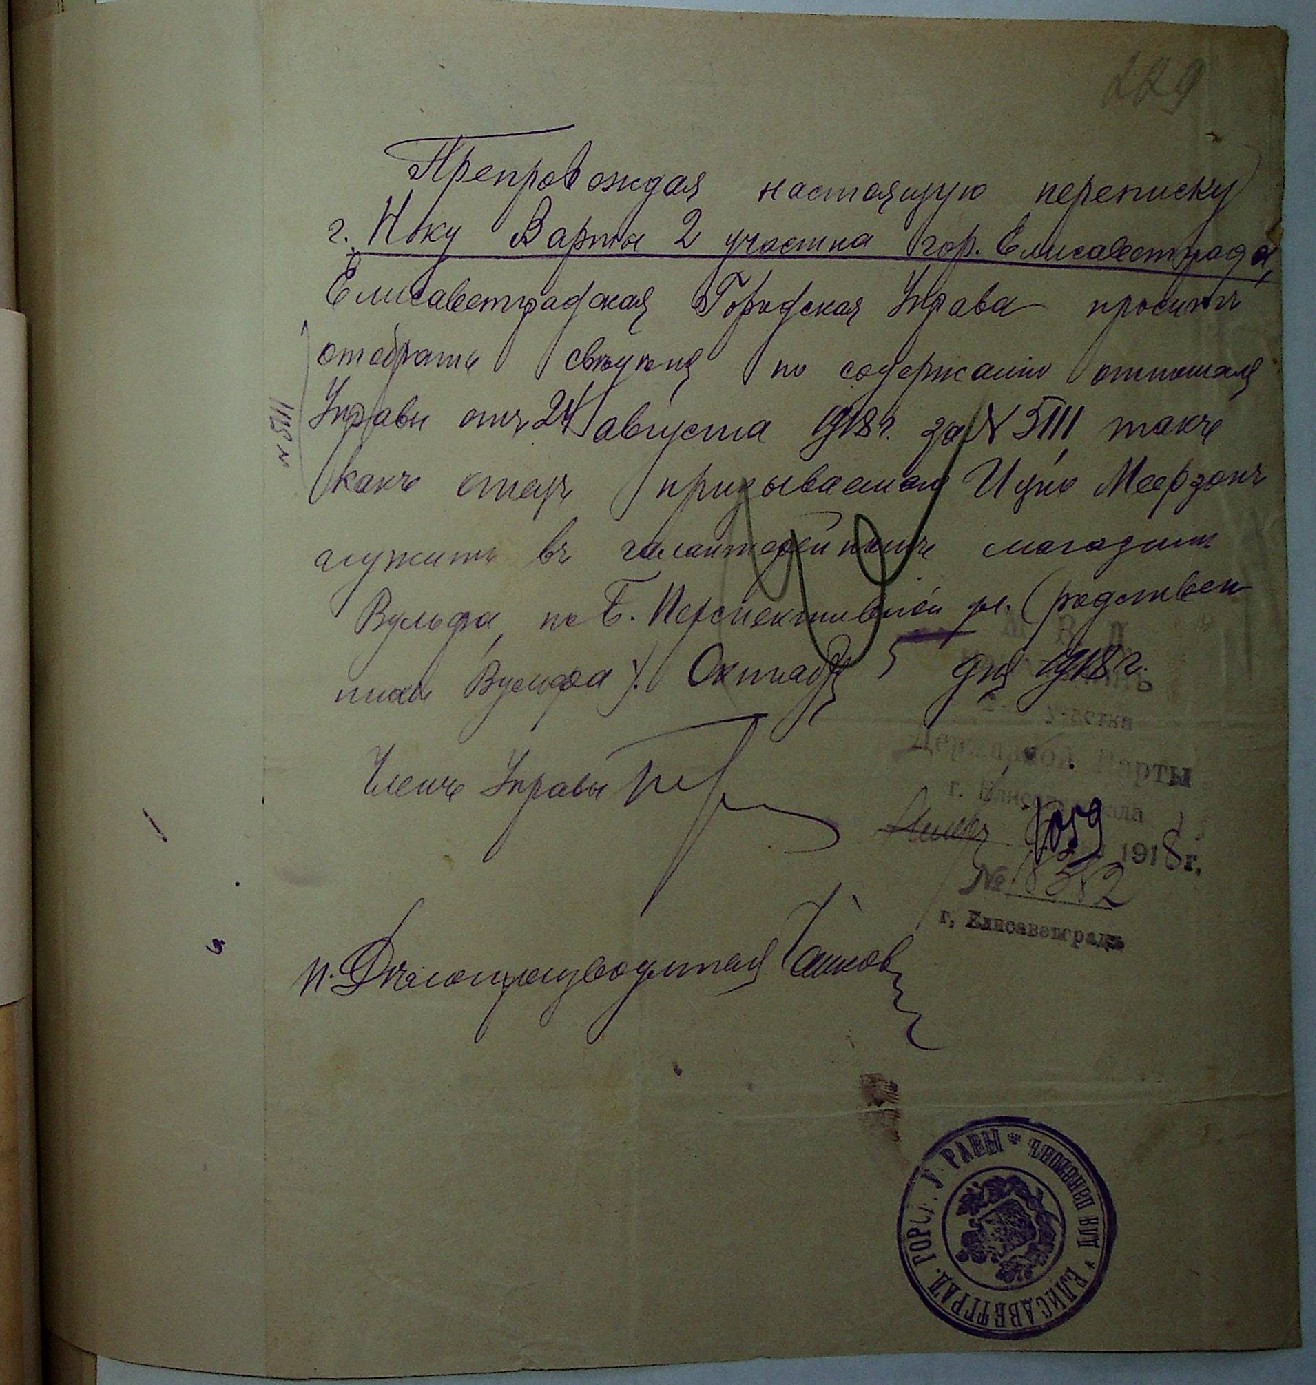 229
Препровождая настоящую переписку
г. Н-ку Варты 2 участка гор. Елисаветграда,
Елисаветградская Городская Управа проситъ
отобрать свѣдѣнія по содержанію отношенія
Управы отъ 24 августа 1918 г. за № 5111 такъ
какъ отецъ призываемаго Ицко Меерзонъ
служитъ въ галантерейномъ магазинѣ
Вульфа, по Б. Перспективной ул. (родствен
никъ Вульфа). Октября 5 дня 1918 г.
Членъ Управы
и. Дѣлопроизводителя
М В Д
2-го участка
Державной Варты
г. Елисаветграда
1059
1918 г.
№
г. Елисаветградъ
ЕЛИСАВЕТГРАД. ГОРОД. УПРАВЫ * ДЛЯ ПАКЕТОВЪ *